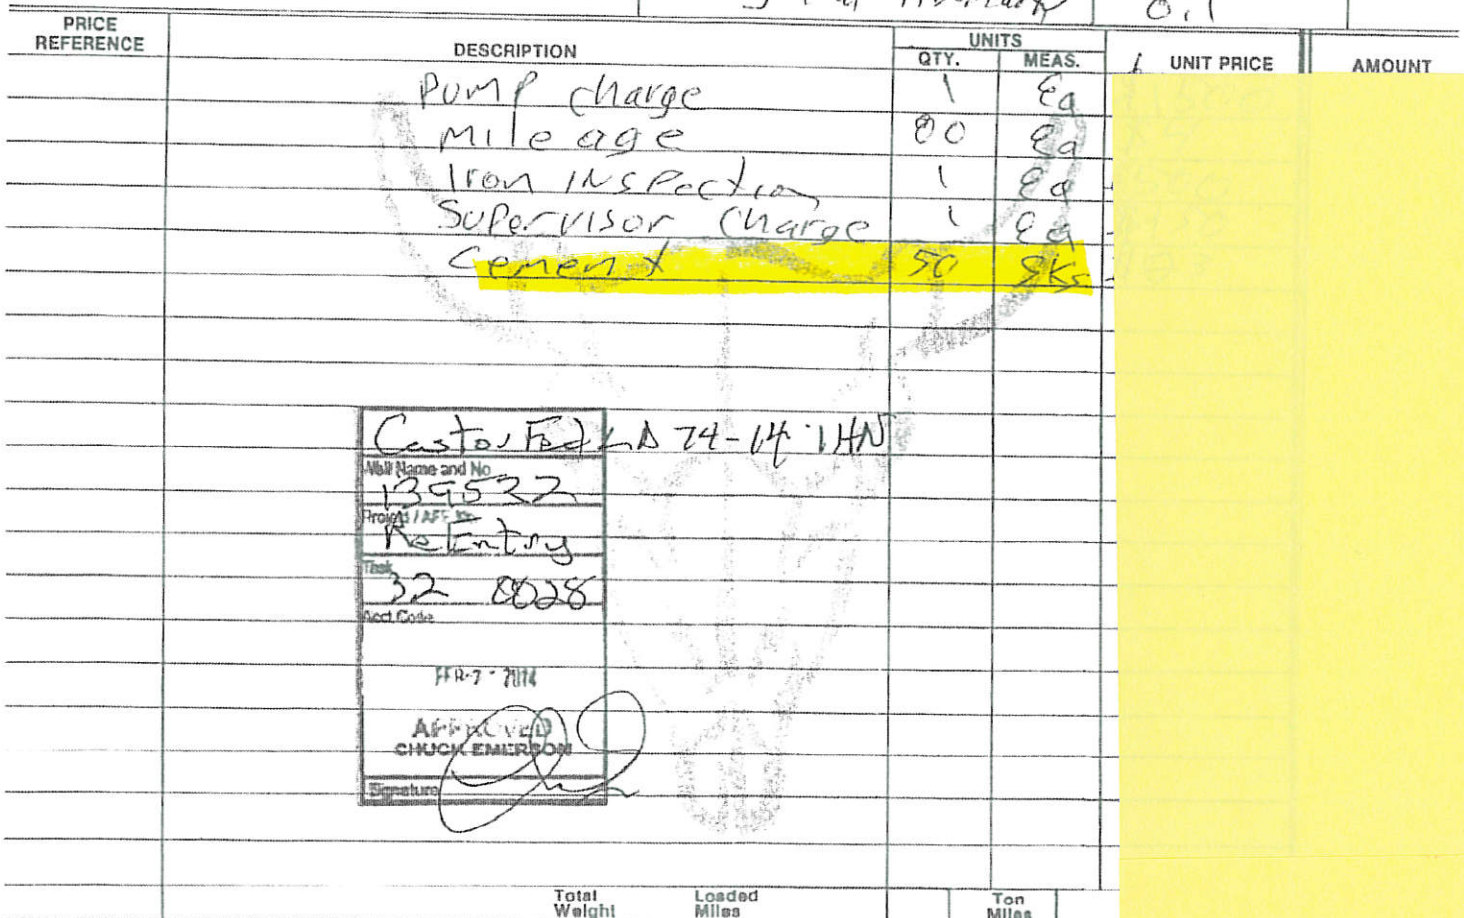 Oil
PRICE REFERENCE DESCRIPTION UNITS UNIT PRICE AMOUNT
QTY. MEAS.
Pump charge 1 Ea
Mileage 80 Ea
Iron Inspection 1 Ea
Supervisor Charge 1 Ea
Cement 50 SKs
Castor Fed LD 74-14-1HN
Well Name and No
139532
Project / AFE No.
ReEntry
Task
32 8028
Acct Code
FEB-7-2014
APPROVED
CHUCK EMERSON
Signature
Total Weight Loaded Miles Ton Miles